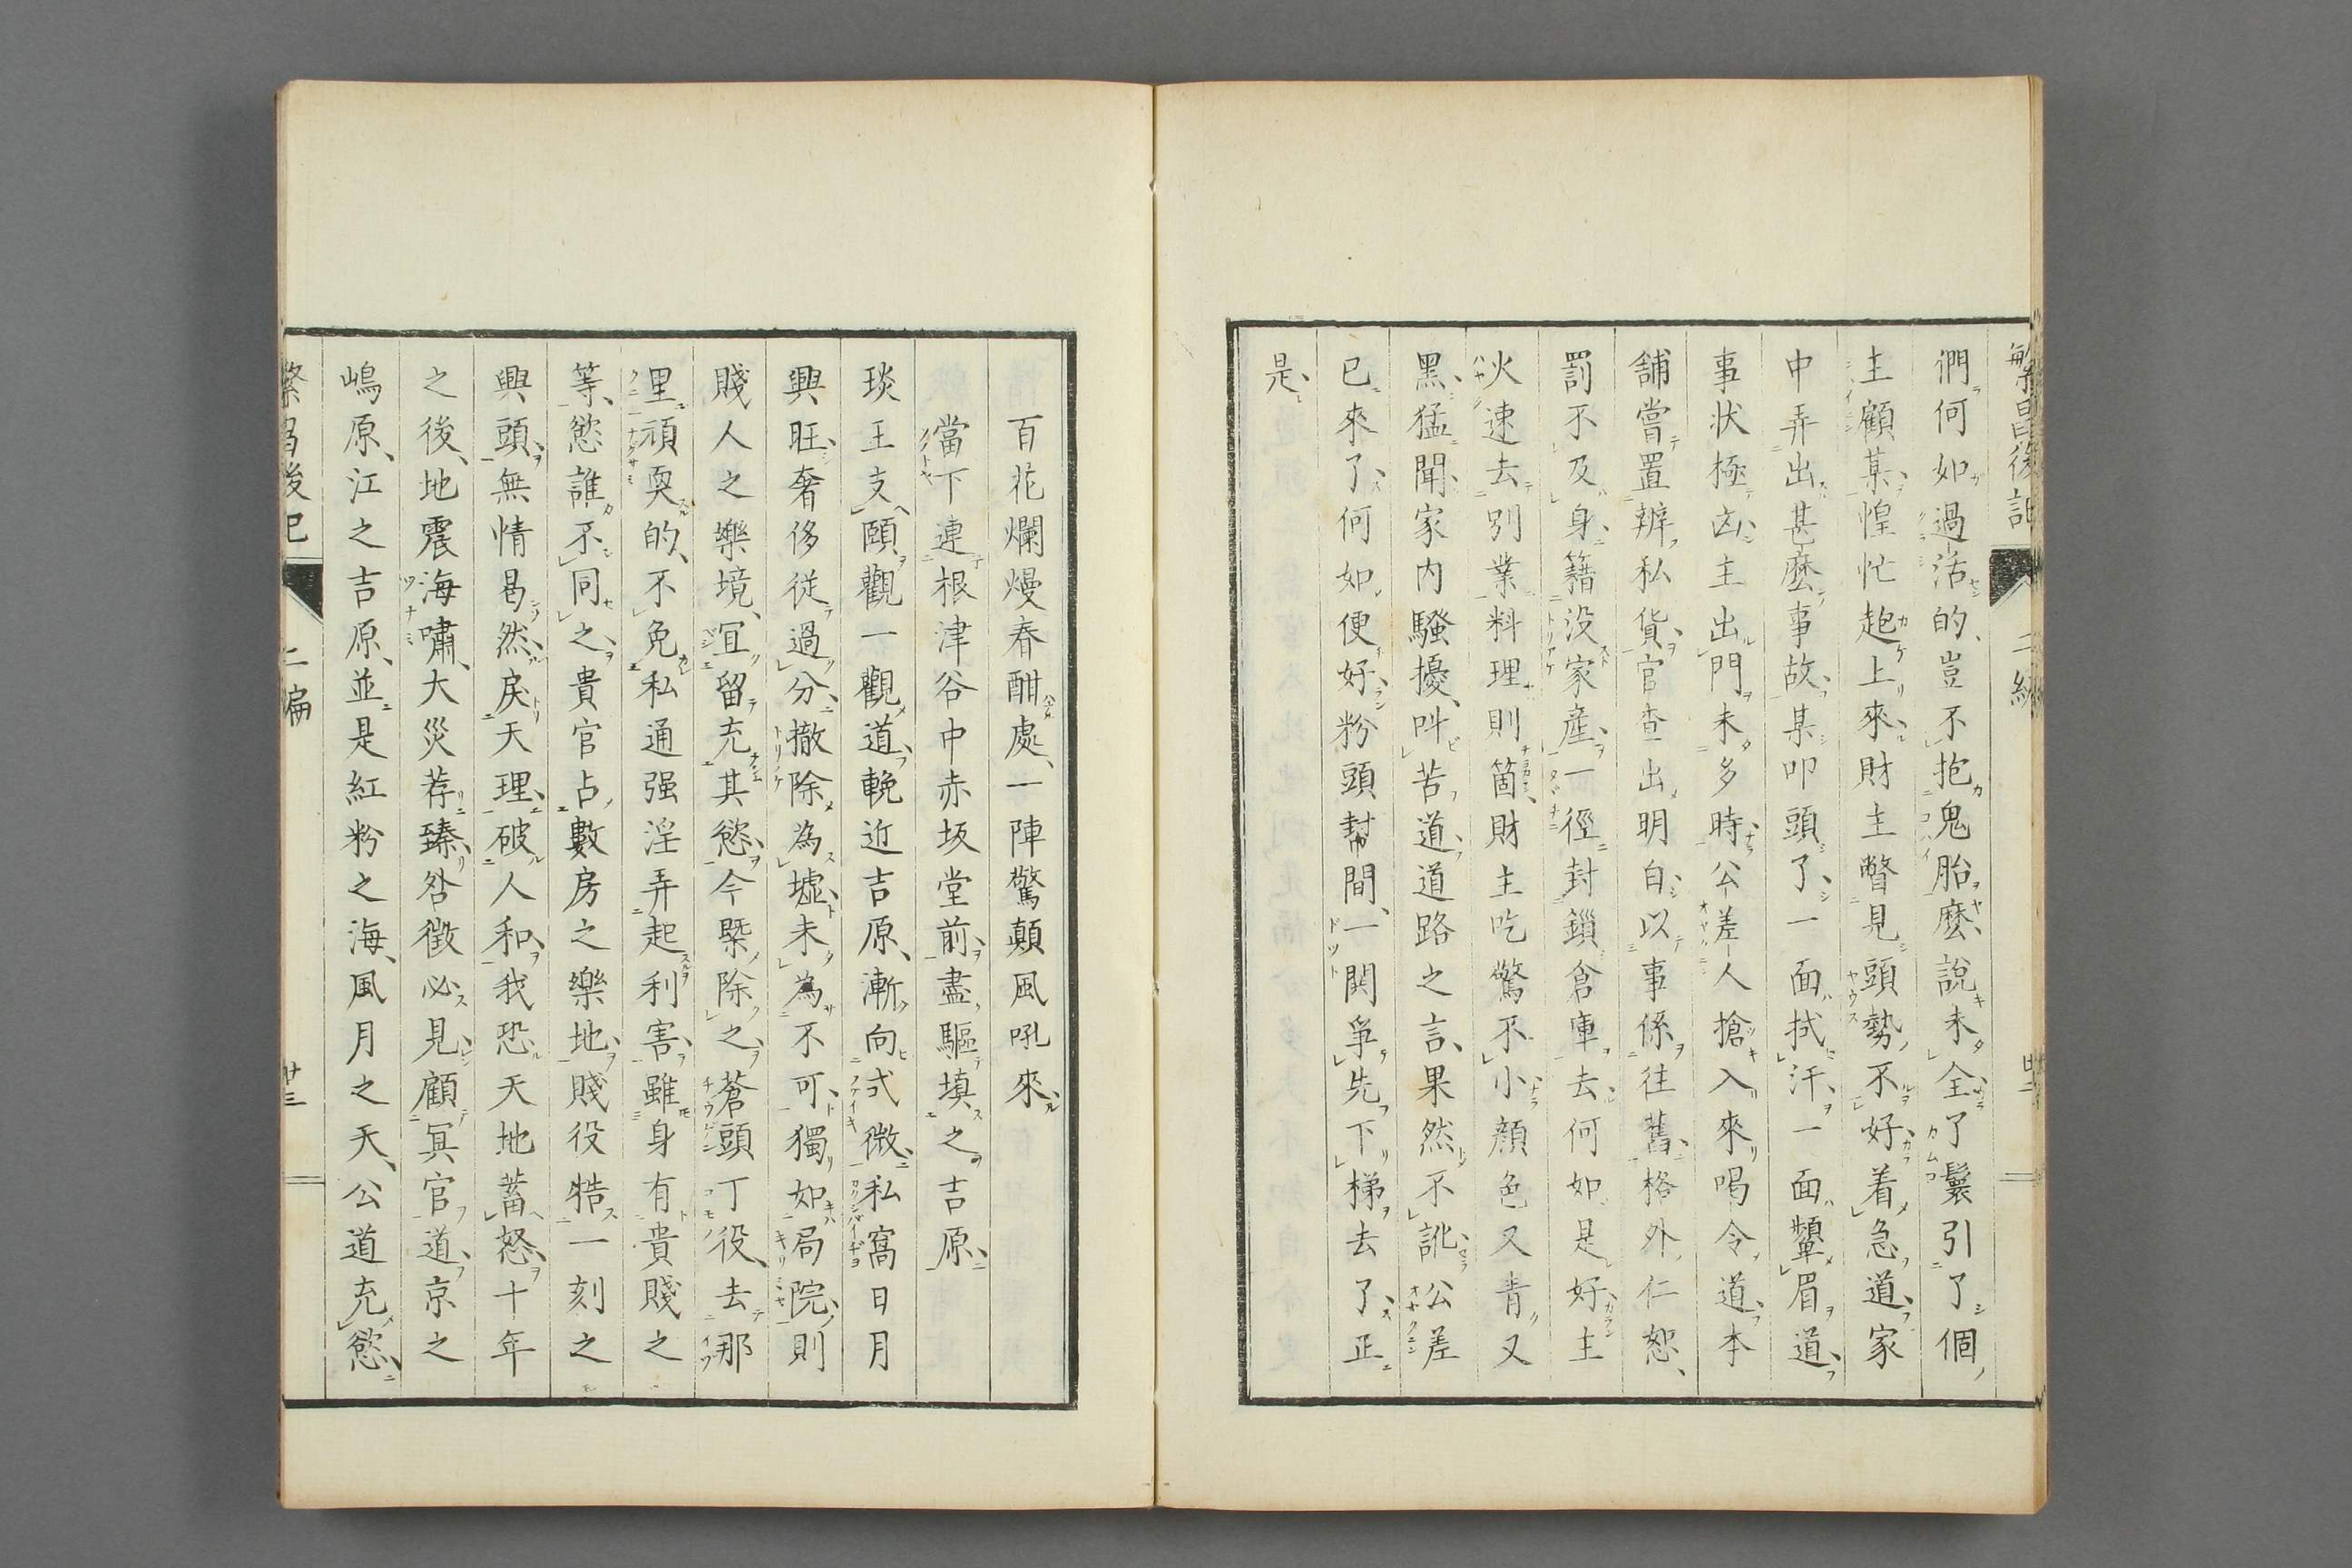 繁昌後記 二編
們何如過活的、豈不抱鬼胎麼、說未全了鬟引了個
主顧某、惶忙起上來、財主瞥見頭勢、不好着急道、家
中弄出甚麼事故、某叩頭了、一面拭汗、一面顰眉道、
事状極凶、主出門未多時、公差人搶入來、喝令道、本
舗嘗置辨私貨、官査出明白、以事係徃舊、格外仁恕、
罰不及身、籍没家産、一徑封鎖倉庫去、何如是好、主
火速去別業料理、則箇財主吃驚不小、顔色又青又
黑、猛聞家内騷擾、呌苦道、道路之言、果然不訛、公差
已來了、何如便好、粉頭幇間、一鬨爭先下梯去了、正
是、
百花爛熳春酣處、一陣驚顛風吼來、
當下連根津谷中赤坂堂前、盡驅填之吉原、
琰王支頤觀一觀道、輓近吉原、漸向式微、私窩日月
興旺、奢侈従過分、撤除為墟、未為不可、獨如局院、則
賤人之樂境、宜留充其慾、今槩除之、蒼頭丁役、去那
里頑耍的、不免私通强淫弄起利害、雖身有貴賤之
等、慾誰不同之、貴官占數房之樂地、賤役牿一刻之
興頭、無情曷然、戾天理、破人和、我恐天地蓄怒、十年
之後、地震海嘯、大災荐臻、咎徵必見、顧冥官道、京之
嶋原、江之吉原、並是紅粉之海、風月之天、公道充慾、
繁昌後記 二編 廿三